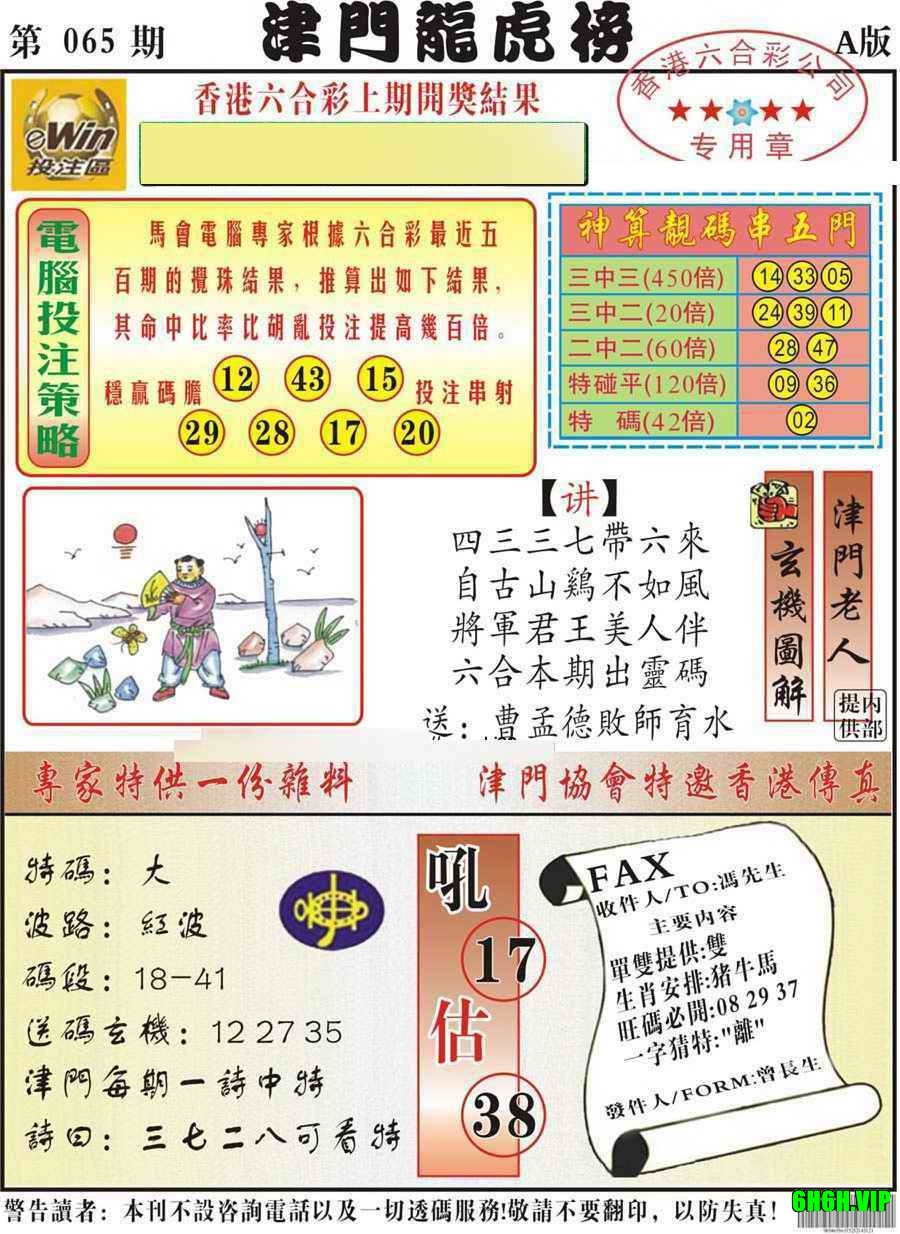 第 065 期
津門龍虎榜
A版
eWin
投注區
香港六合彩上期開獎結果
香港六合彩公司
专用章
電腦投注策略
馬會電腦專家根據六合彩最近五
百期的攪珠結果，推算出如下結果，
其命中比率比胡亂投注提高幾百倍。
穩贏碼膽 12 43 15 投注串射
29 28 17 20
神算靚碼串五門
三中三(450倍) 14 33 05
三中二(20倍) 24 39 11
二中二(60倍) 28 47
特碰平(120倍) 09 36
特 碼(42倍) 02
【讲】
四三三七帶六來
自古山鷄不如風
將軍君王美人伴
六合本期出靈碼
送：曹孟德敗師育水
玄機圖解
津門老人
提供
内部
專家特供一份雜料
津門協會特邀香港傳真
特碼：大
波路：紅波
碼段：18-41
送碼玄機：12 27 35
津門每期一詩中特
詩曰：三七二八可看特
吼
17
估
38
FAX
收件人/TO:馮先生
主要内容
單雙提供:雙
生肖安排:猪牛馬
旺碼必開:08 29 37
一字猜特:"離"
發件人/FORM:曾長生
警告讀者：本刊不設咨詢電話以及一切透碼服務!敬請不要翻印，以防失真！
6H6H.VIP